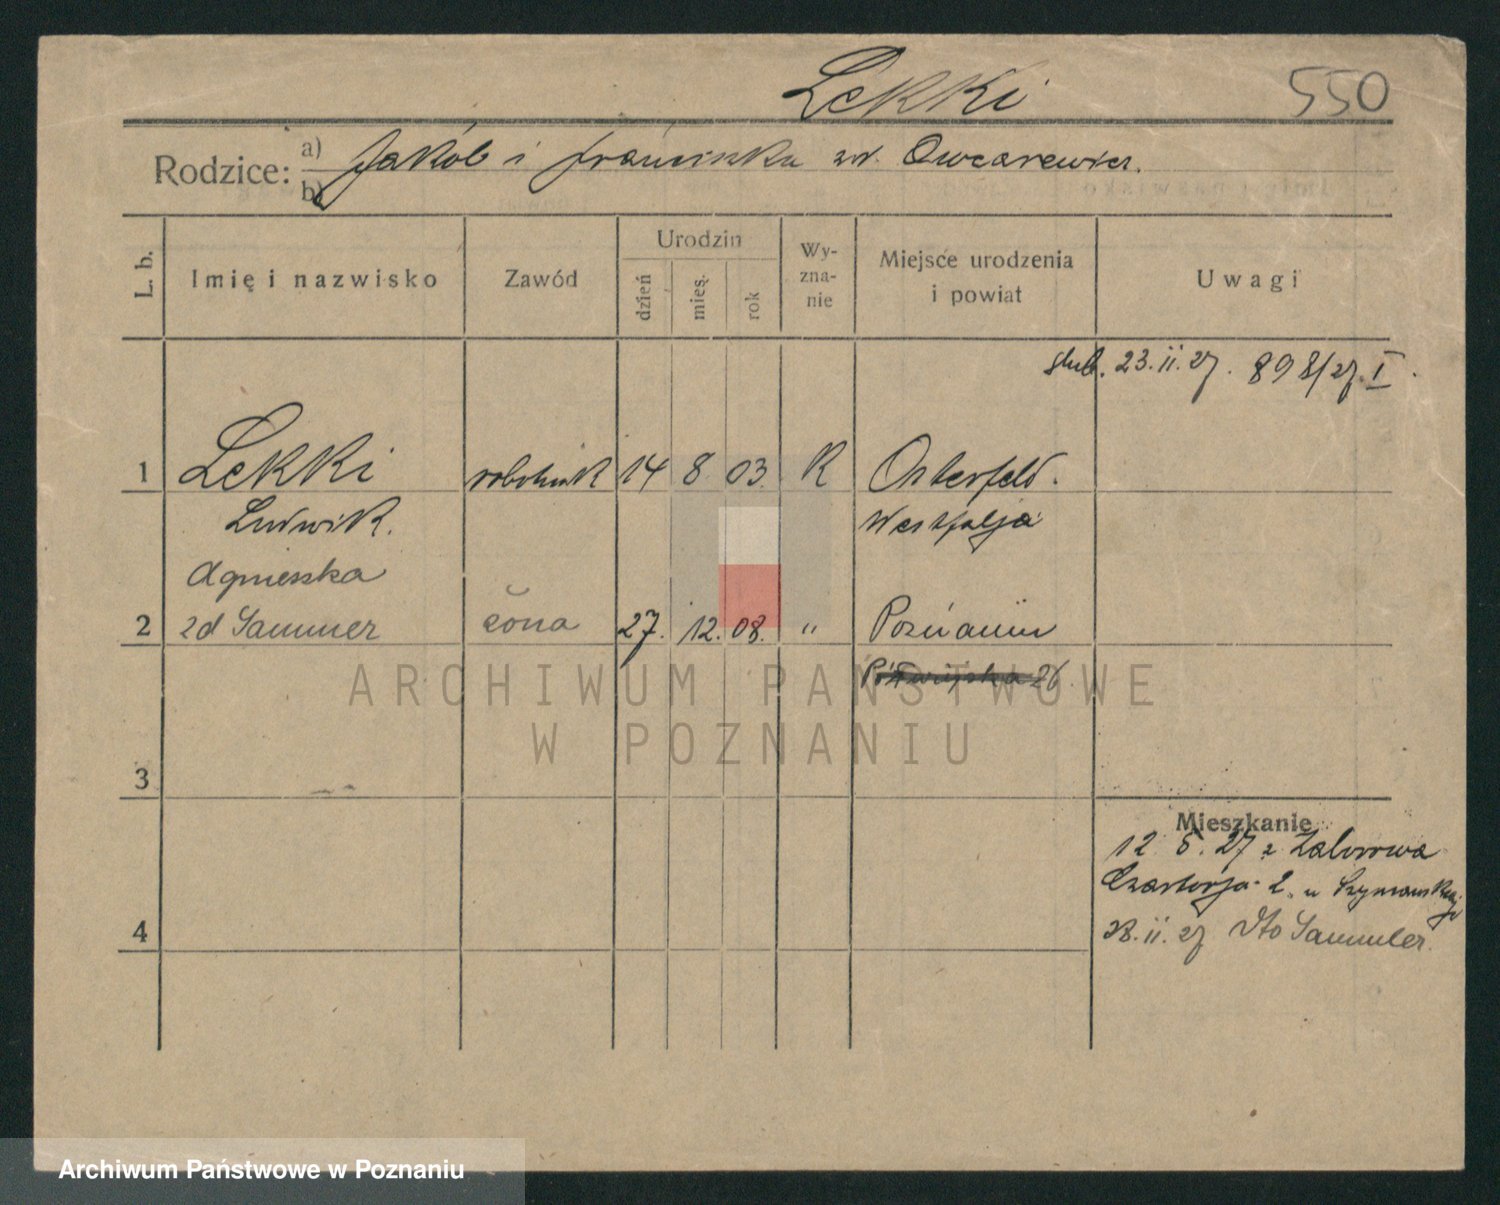 Lekki 550
Rodzice: a) Jakób i Franciszka zd. Owczarewicz.
b)
L. b. Imię i nazwisko Zawód Urodzin dzień mies. rok Wyznanie Miejsce urodzenia i powiat Uwagi
ślub. 23.II.27. 898/27.I.
1 Lekki robotnik 14 8 03. R Osterfeld.
Ludwik. Westfalja
Agnieszka
2 zd Sammler żona 27. 12. 08. " Poznaniu
26
3
Mieszkanie
12 5. 27 z Zaborowa
Czartorja 2. u Szymańskiej
4 28.II.27 Dto Sammler.
ARCHIWUM PAŃSTWOWE
W POZNANIU
Archiwum Państwowe w Poznaniu